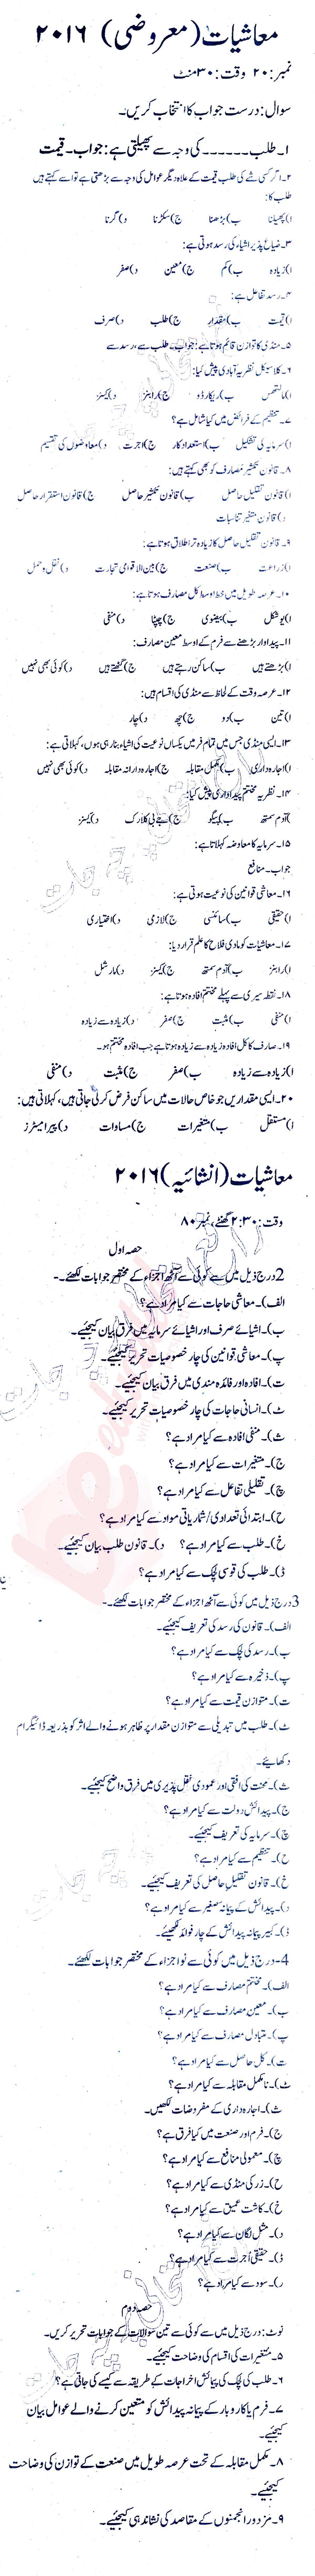 معاشیات (معروضی) ۲۰۱۶
نمبر: ۲۰ وقت: ۳۰ منٹ
سوال: درست جواب کا انتخاب کریں۔
۱۔ طلب ۔۔۔۔۔۔ کی وجہ سے پھیلتی ہے: جواب۔ قیمت
۲۔ اگر کسی شے کی طلب قیمت کے علاوہ دیگر عوامل کی وجہ سے بڑھتی ہے تو اسے کہتے ہیں
طلب کا:
ا) پھیلنا ب) بڑھنا ج) سکڑنا د) گرنا
۳۔ ضیاع پذیر اشیاء کی رسد ہوتی ہے:
ا) زیادہ ب) کم ج) معین د) صفر
۴۔ رسد تفاعل ہے:
ا) قیمت ب) مقدار ج) طلب د) صرف
۵۔ منڈی کا توازن قائم ہوتا ہے: جواب۔ طلب سے، رسد سے
۶۔ کلاسیکل نظریہ آبادی پیش کیا:
ا) مالتھس ب) ریکارڈو ج) رابنز د) کینز
۷۔ تنظیم کے فرائض میں کیا شامل ہے؟
ا) سرمایہ کی تشکیل ب) استعداد کار ج) اجرت د) معاوضوں کی تقسیم
۸۔ قانون تکثیر مصارف کو بھی کہتے ہیں:
ا) قانون تقلیل حاصل ب) قانون تکثیر حاصل ج) قانون استقرار حاصل
د) قانون متغیر تناسبات
۹۔ قانون تقلیل حاصل کا زیادہ تر اطلاق ہوتا ہے:
ا) زراعت ب) صنعت ج) بین الاقوامی تجارت د) نقل و حمل
۱۰۔ عرصہ طویل میں خط اوسط کل مصارف ہوتا ہے:
ا) یو شکل ب) بیضوی ج) چپٹا د) منفی
۱۱۔ پیداوار بڑھنے سے فرم کے اوسط معین مصارف:
ا) بڑھتے ہیں ب) ساکن رہتے ہیں ج) گھٹتے ہیں د) کوئی بھی نہیں
۱۲۔ عرصہ وقت کے لحاظ سے منڈی کی اقسام ہیں:
ا) تین ب) دو ج) چھ د) چار
۱۳۔ ایسی منڈی جس میں تمام فرمیں یکساں نوعیت کی اشیاء بنا رہی ہوں، کہلاتی ہے:
ا) اجارہ داری ب) مکمل مقابلہ ج) اجارہ دارانہ مقابلہ د) کوئی بھی نہیں
۱۴۔ نظریہ مختتم پیداواری پیش کیا:
ا) آدم سمتھ ب) پیگو ج) جے بی کلارک د) کینز
۱۵۔ سرمایہ کا معاوضہ کہلاتا ہے:
جواب۔ منافع
۱۶۔ معاشی قوانین کی نوعیت ہوتی ہے:
ا) حقیقی ب) سائنسی ج) لازمی د) اختیاری
۱۷۔ معاشیات کو مادی فلاح کا علم قرار دیا:
ا) رابنز ب) آدم سمتھ ج) کینز د) مارشل
۱۸۔ نقطہ سیری سے پہلے مختتم افادہ ہوتا ہے:
ا) منفی ب) مثبت ج) صفر د) زیادہ سے زیادہ
۱۹۔ صارف کا کل افادہ زیادہ سے زیادہ ہوتا ہے جب افادہ مختتم ہو۔
ا) زیادہ سے زیادہ ب) صفر ج) مثبت د) منفی
۲۰۔ ایسی مقداریں جو خاص حالات میں ساکن فرض کر لی جاتی ہیں، کہلاتی ہیں:
ا) مستقل ب) متغیرات ج) مساوات د) پیرامیٹرز
معاشیات (انشائیہ) ۲۰۱۶
وقت: ۲:۳۰ گھنٹے، نمبر ۸۰
حصہ اول
2 درج ذیل میں سے کوئی سے آٹھ اجزاء کے مختصر جوابات لکھئے۔
الف)۔ معاشی حاجات سے کیا مراد ہے؟
ب)۔ اشیائے صرف اور اشیائے سرمایہ میں فرق بیان کیجئیے۔
پ)۔ معاشی قوانین کی چار خصوصیات تحریر کیجئیے۔
ت)۔ افادہ اور فائدہ مندی میں فرق بیان کیجئیے۔
ٹ)۔ انسانی حاجات کی چار خصوصیات تحریر کیجئیے۔
ث)۔ منفی افادہ سے کیا مراد ہے؟
ج)۔ متغیرات سے کیا مراد ہے؟
چ)۔ تقلیلی تفاعل سے کیا مراد ہے؟
ح)۔ ابتدائی تعدادی/شماریاتی مواد سے کیا مراد ہے؟
خ)۔ طلب سے کیا مراد ہے؟ د)۔ قانون طلب بیان کیجئیے۔
ڈ)۔ طلب کی قوسی لچک سے کیا مراد ہے؟
3 درج ذیل میں کوئی سے آٹھ اجزاء کے مختصر جوابات لکھئے۔
الف)۔ قانون کی رسد کی تعریف کیجئیے۔
ب)۔ رسد کی لچک سے کیا مراد ہے؟
پ)۔ ذخیرہ سے کیا مراد ہے؟
ت)۔ متوازن قیمت سے کیا مراد ہے؟
ٹ)۔ طلب میں تبدیلی سے متوازن مقدار پر ظاہر ہونے والے اثر کو بذریعہ ڈائیگرام
دکھایئے۔
ث)۔ محنت کی افقی اور عمودی نقل پذیری میں فرق واضح کیجئیے۔
ج)۔ پیدائش دولت سے کیا مراد ہے؟
چ)۔ سرمایہ کی تعریف کیجئیے۔
ح)۔ تنظیم سے کیا مراد ہے؟
خ)۔ قانون تقلیل حاصل کی تعریف کیجئیے۔
د)۔ پیدائش کے پیمانہ صغیر سے کیا مراد ہے؟
ڈ)۔ کبیر پیمانہ پیدائش کے چار فوائد لکھئیے۔
4۔ درج ذیل میں کوئی سے نو اجزاء کے مختصر جوابات لکھئے۔
الف)۔ مختتم مصارف سے کیا مراد ہے؟
ب)۔ معین مصارف سے کیا مراد ہے؟
پ)۔ متبادل مصارف سے کیا مراد ہے؟
ت)۔ کل حاصل سے کیا مراد ہے؟
ٹ)۔ نامکمل مقابلہ سے کیا مراد ہے؟
ث)۔ اجارہ داری کے مفروضات لکھیں۔
ج)۔ فرم اور صنعت میں کیا فرق ہے؟
چ)۔ معمولی منافع سے کیا مراد ہے؟
ح)۔ زر کی منڈی سے کیا مراد ہے؟
خ)۔ کاشت عمیق سے کیا مراد ہے؟
د)۔ مثل لگان سے کیا مراد ہے؟
ڈ)۔ حقیقی اُجرت سے کیا مراد ہے؟
ر)۔ سود سے کیا مراد ہے؟
حصہ دوم
نوٹ: درج ذیل میں سے کوئی سے تین سوالات کے جوابات تحریر کریں۔
۵۔ متغیرات کی اقسام کی وضاحت کیجئیے۔
۶۔ طلب کی لچک کی پیمائش اخراجات کے طریقہ سے کیسے کی جاتی ہے؟
۷۔ فرم یا کاروبار کے پیمانہ پیدائش کو متعین کرنے والے عوامل بیان
کیجئیے۔
۸۔ مکمل مقابلہ کے تحت عرصہ طویل میں صنعت کے توازن کی وضاحت
کیجئیے۔
۹۔ مزدور انجمنوں کے مقاصد کی نشاندہی کیجئیے۔